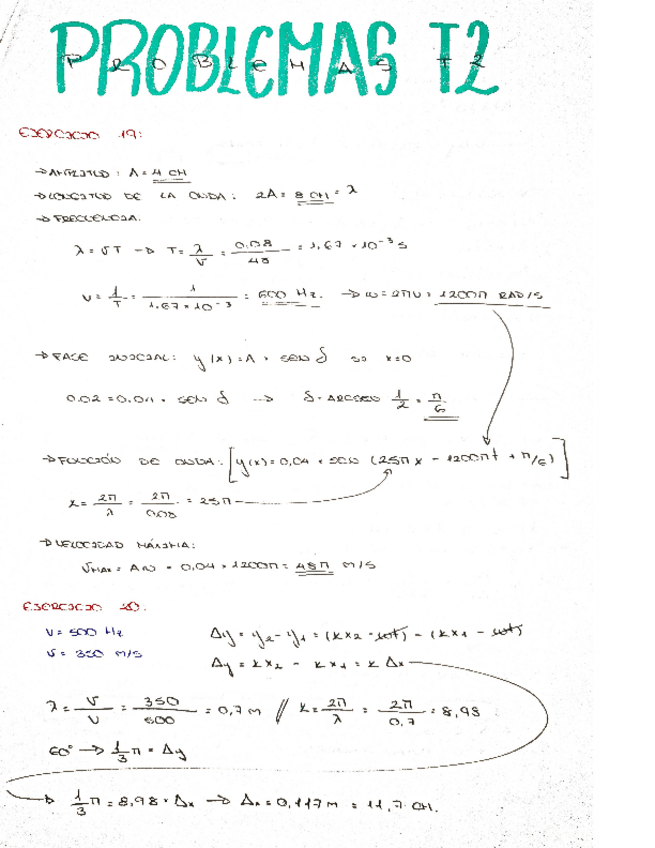 PROBLEMAS T2
PROBLEMAS T2
EJERCICIO 19:
→ AMPLITUD: A = 4 CM
→ LONGITUD DE LA ONDA: 2A = 8 CM = λ
→ FRECUENCIA.
λ = vT → T = λ/v = 0.08/48 = 1,67 × 10⁻³ s
ν = 1/T = 1/1.67×10⁻³ = 600 Hz. → ω = 2πν = 1200π RAD/S
→ FASE INICIAL: y(x) = A · SEN δ SI x=0
0.02 = 0.04 · SEN δ → δ = ARCSEN 1/2 = π/6
→ FUNCIÓN DE ONDA: [y(x) = 0,04 · SEN (25π x − 1200πt + π/6)]
k = 2π/λ = 2π/0.08 = 25π
→ VELOCIDAD MÁXIMA:
VMAX = Aω = 0.04 · 1200π = 48π M/S
EJERCICIO 20:
ν = 500 Hz
v = 350 M/S
Δy = y₂ − y₁ = (kx₂ − ωt) − (kx₁ − ωt)
Δy = kx₂ − kx₁ = k Δx
λ = v/ν = 350/500 = 0,7 m // k = 2π/λ = 2π/0,7 = 8,98
60° → 1/3 π = Δy
→ 1/3 π = 8,98 · Δx → Δx = 0,117 m = 11,7 CM.